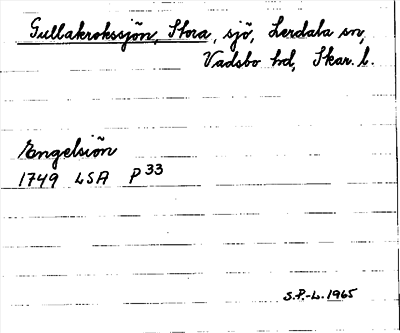 Gullakrokssjön, Stora, sjö, Lerdala sn,
Vadsbo hd, Skar. l.
Engelsiön
1749 LSA P 33
S.P.-L. 1965